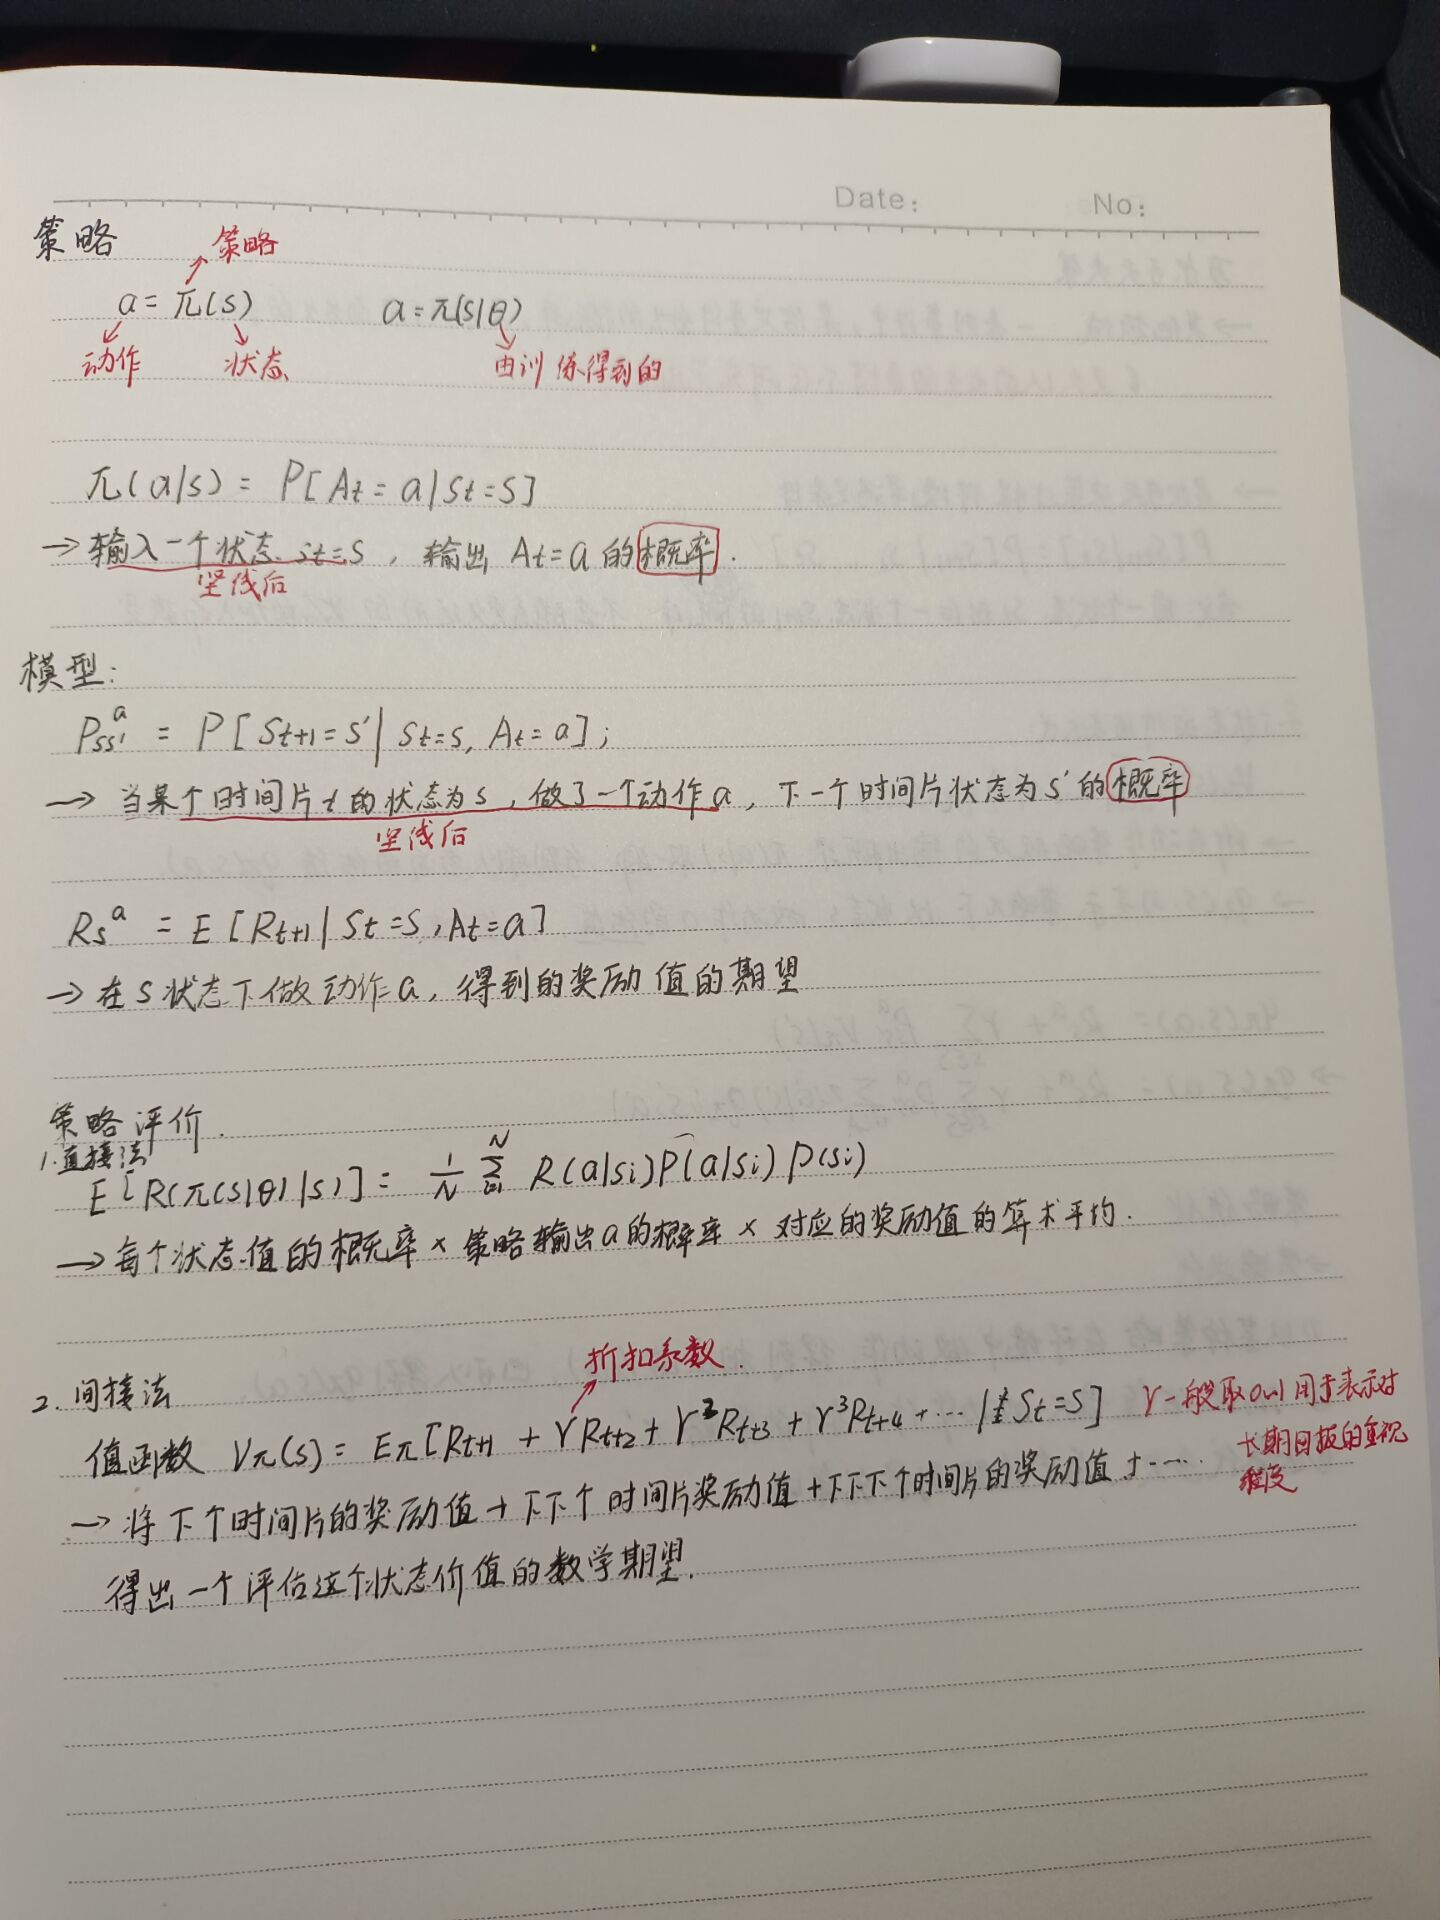 Date:
No:
策略
策略
a = π(s)
a = π(s|θ)
动作
状态
由训练得到的
π(a|s) = P[At = a | St = S]
→ 输入一个状态 St = S , 输出 At = a 的概率.
竖线后
模型:
Pss'ᵃ = P [ St+1 = s' | St = s, At = a ] ;
→ 当某个时间片 t 的状态为 s , 做了一个动作 a , 下一个时间片状态为 s' 的概率
竖线后
Rsᵃ = E [ Rt+1 | St = S , At = a ]
→ 在 S 状态下做动作 a , 得到的奖励值的期望
策略评价.
1. 直接法
E [ R(π(s|θ) | s) ] = 1/N Σ R(a|si) P(a|si) P(si)
→ 每个状态值的概率 × 策略输出 a 的概率 × 对应的奖励值的算术平均.
折扣系数.
2. 间接法
值函数 Vπ(s) = Eπ [ Rt+1 + γRt+2 + γ²Rt+3 + γ³Rt+4 + ··· | St = S ]
γ一般取0~1 用于表示对
长期目标的重视
程度
→ 将下个时间片的奖励值 + 下下个时间片奖励值 + 下下下个时间片的奖励值 + ·····
得出一个评估这个状态价值的数学期望.